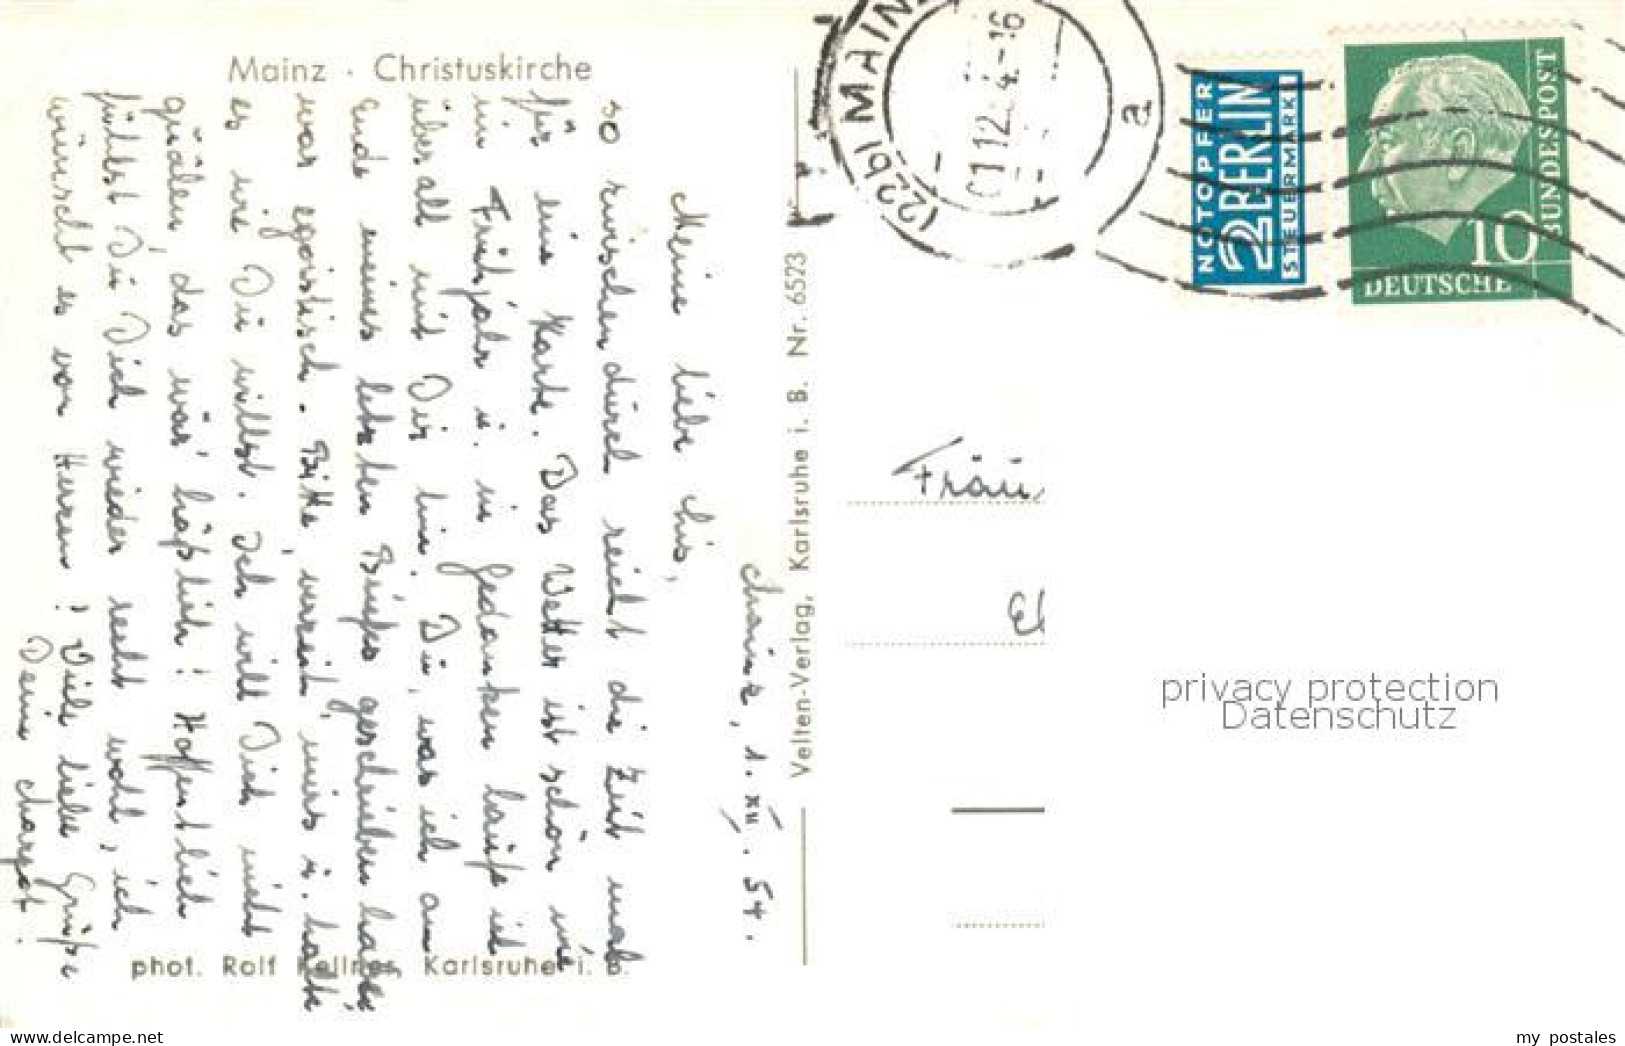 Mainz · Christuskirche
Mainz, 1. XII. 54.
Meine liebe
so zwischendurch reicht die Zeit mal
für eine Karte. Das Wetter ist schön wie
im Frühjahr u. in Gedanken laufe ich
überall mit Dir hin. Du, was ich am
Ende meines letzten Briefes geschrieben habe,
war egoistisch. Bitte, verzeih' mir's u. halte
es wie Du willst. Ich will Dich nicht
quälen, das wär' häßlich! Hoffentlich
fühlst Du Dich wieder recht wohl, ich
wünscht es von Herzen! Viele liebe Grüße
Deine Margot.
phot. Rolf Kellner, Karlsruhe i. B.
Velten-Verlag, Karlsruhe i. B. Nr. 6523
(22b) MAINZ
a
01.12.54.-16
NOTOPFER
2 BERLIN
STEUERMARKE
10
DEUTSCHE
BUNDESPOST
Fräu
privacy protection
Datenschutz
my postales